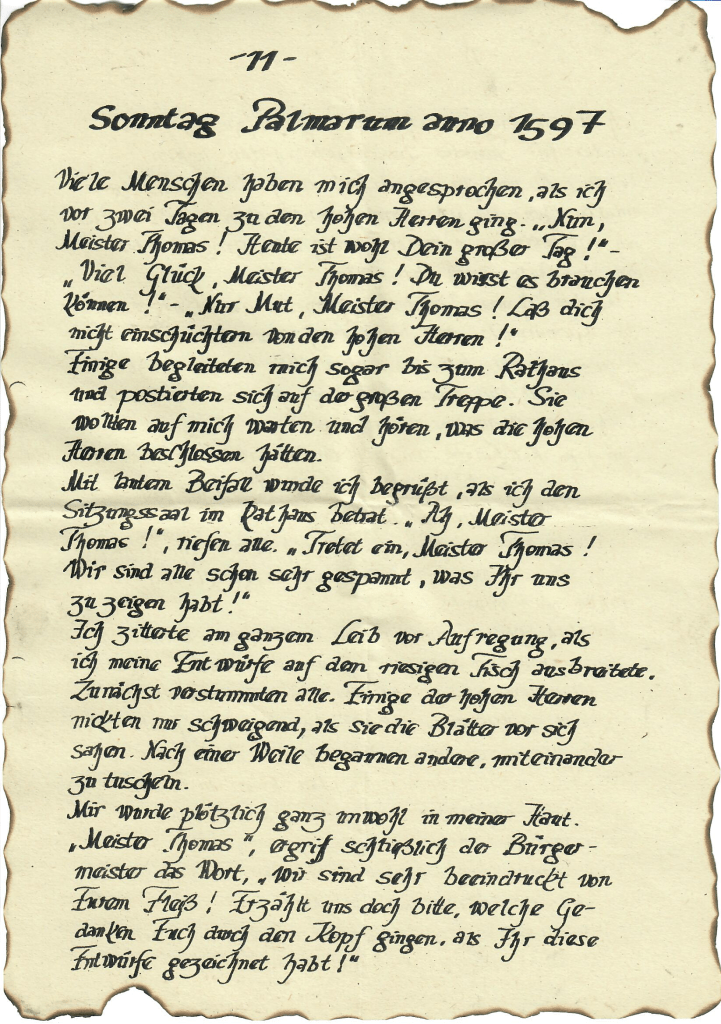 -11-
Sonntag Palmarum anno 1597
Viele Menschen haben mich angesprochen, als ich
vor zwei Tagen zu den hohen Herren ging. „Nun,
Meister Thomas! Heute ist wohl Dein großer Tag!“ -
„Viel Glück, Meister Thomas! Du wirst es brauchen
können!“ - „Nur Mut, Meister Thomas! Laß dich
nicht einschüchtern von den hohen Herren!“
Einige begleiteten mich sogar bis zum Rathaus
und postierten sich auf der großen Treppe. Sie
wollten auf mich warten und hören, was die hohen
Herren beschlossen hätten.
Mit lautem Beifall wurde ich begrüßt, als ich den
Sitzungssaal im Rathaus betrat. „Ah, Meister
Thomas!“, riefen alle. „Tretet ein, Meister Thomas!
Wir sind alle schon sehr gespannt, was Ihr uns
zu zeigen habt!“
Ich zitterte am ganzem Leib vor Aufregung, als
ich meine Entwürfe auf dem riesigen Tisch ausbreitete.
Zunächst verstummten alle. Einige der hohen Herren
nickten nur schweigend, als sie die Blätter vor sich
sahen. Nach einer Weile begannen andere, miteinander
zu tuscheln.
Mir wurde plötzlich ganz unwohl in meiner Haut.
„Meister Thomas“, ergriff schließlich der Bürger-
meister das Wort, „Wir sind sehr beeindruckt von
Eurem Fleiß! Erzählt uns doch bitte, welche Ge-
danken Euch durch den Kopf gingen, als Ihr diese
Entwürfe gezeichnet habt!“